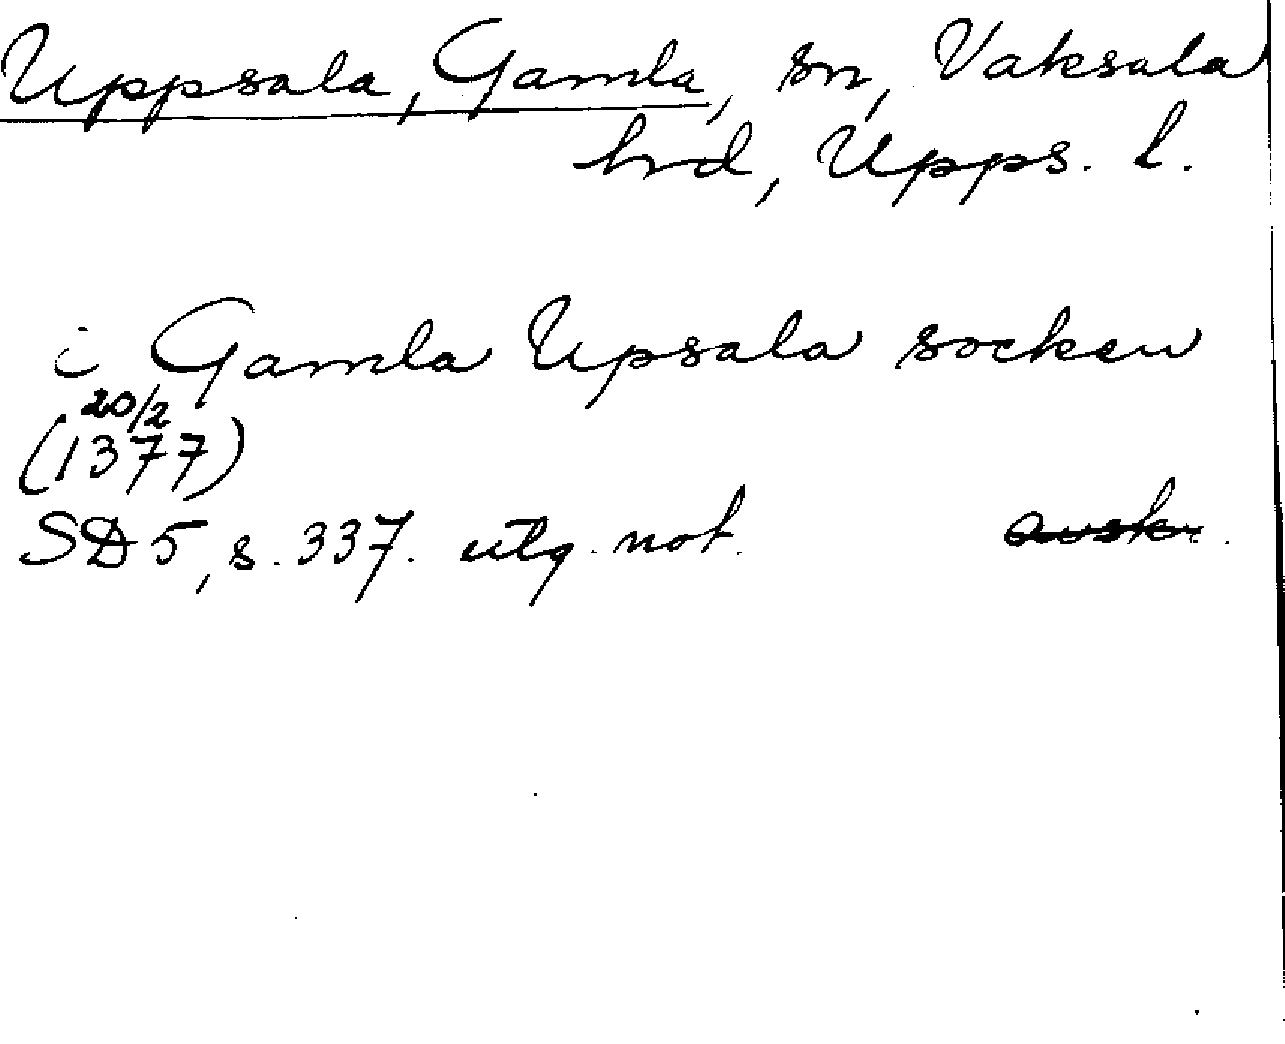 Uppsala, Gamla, sn, Vaksala
hrd, Upps. l.
i Gamla Upsala socken
20/2
(1377)
SD 5, s. 337. utg. not. avskr.